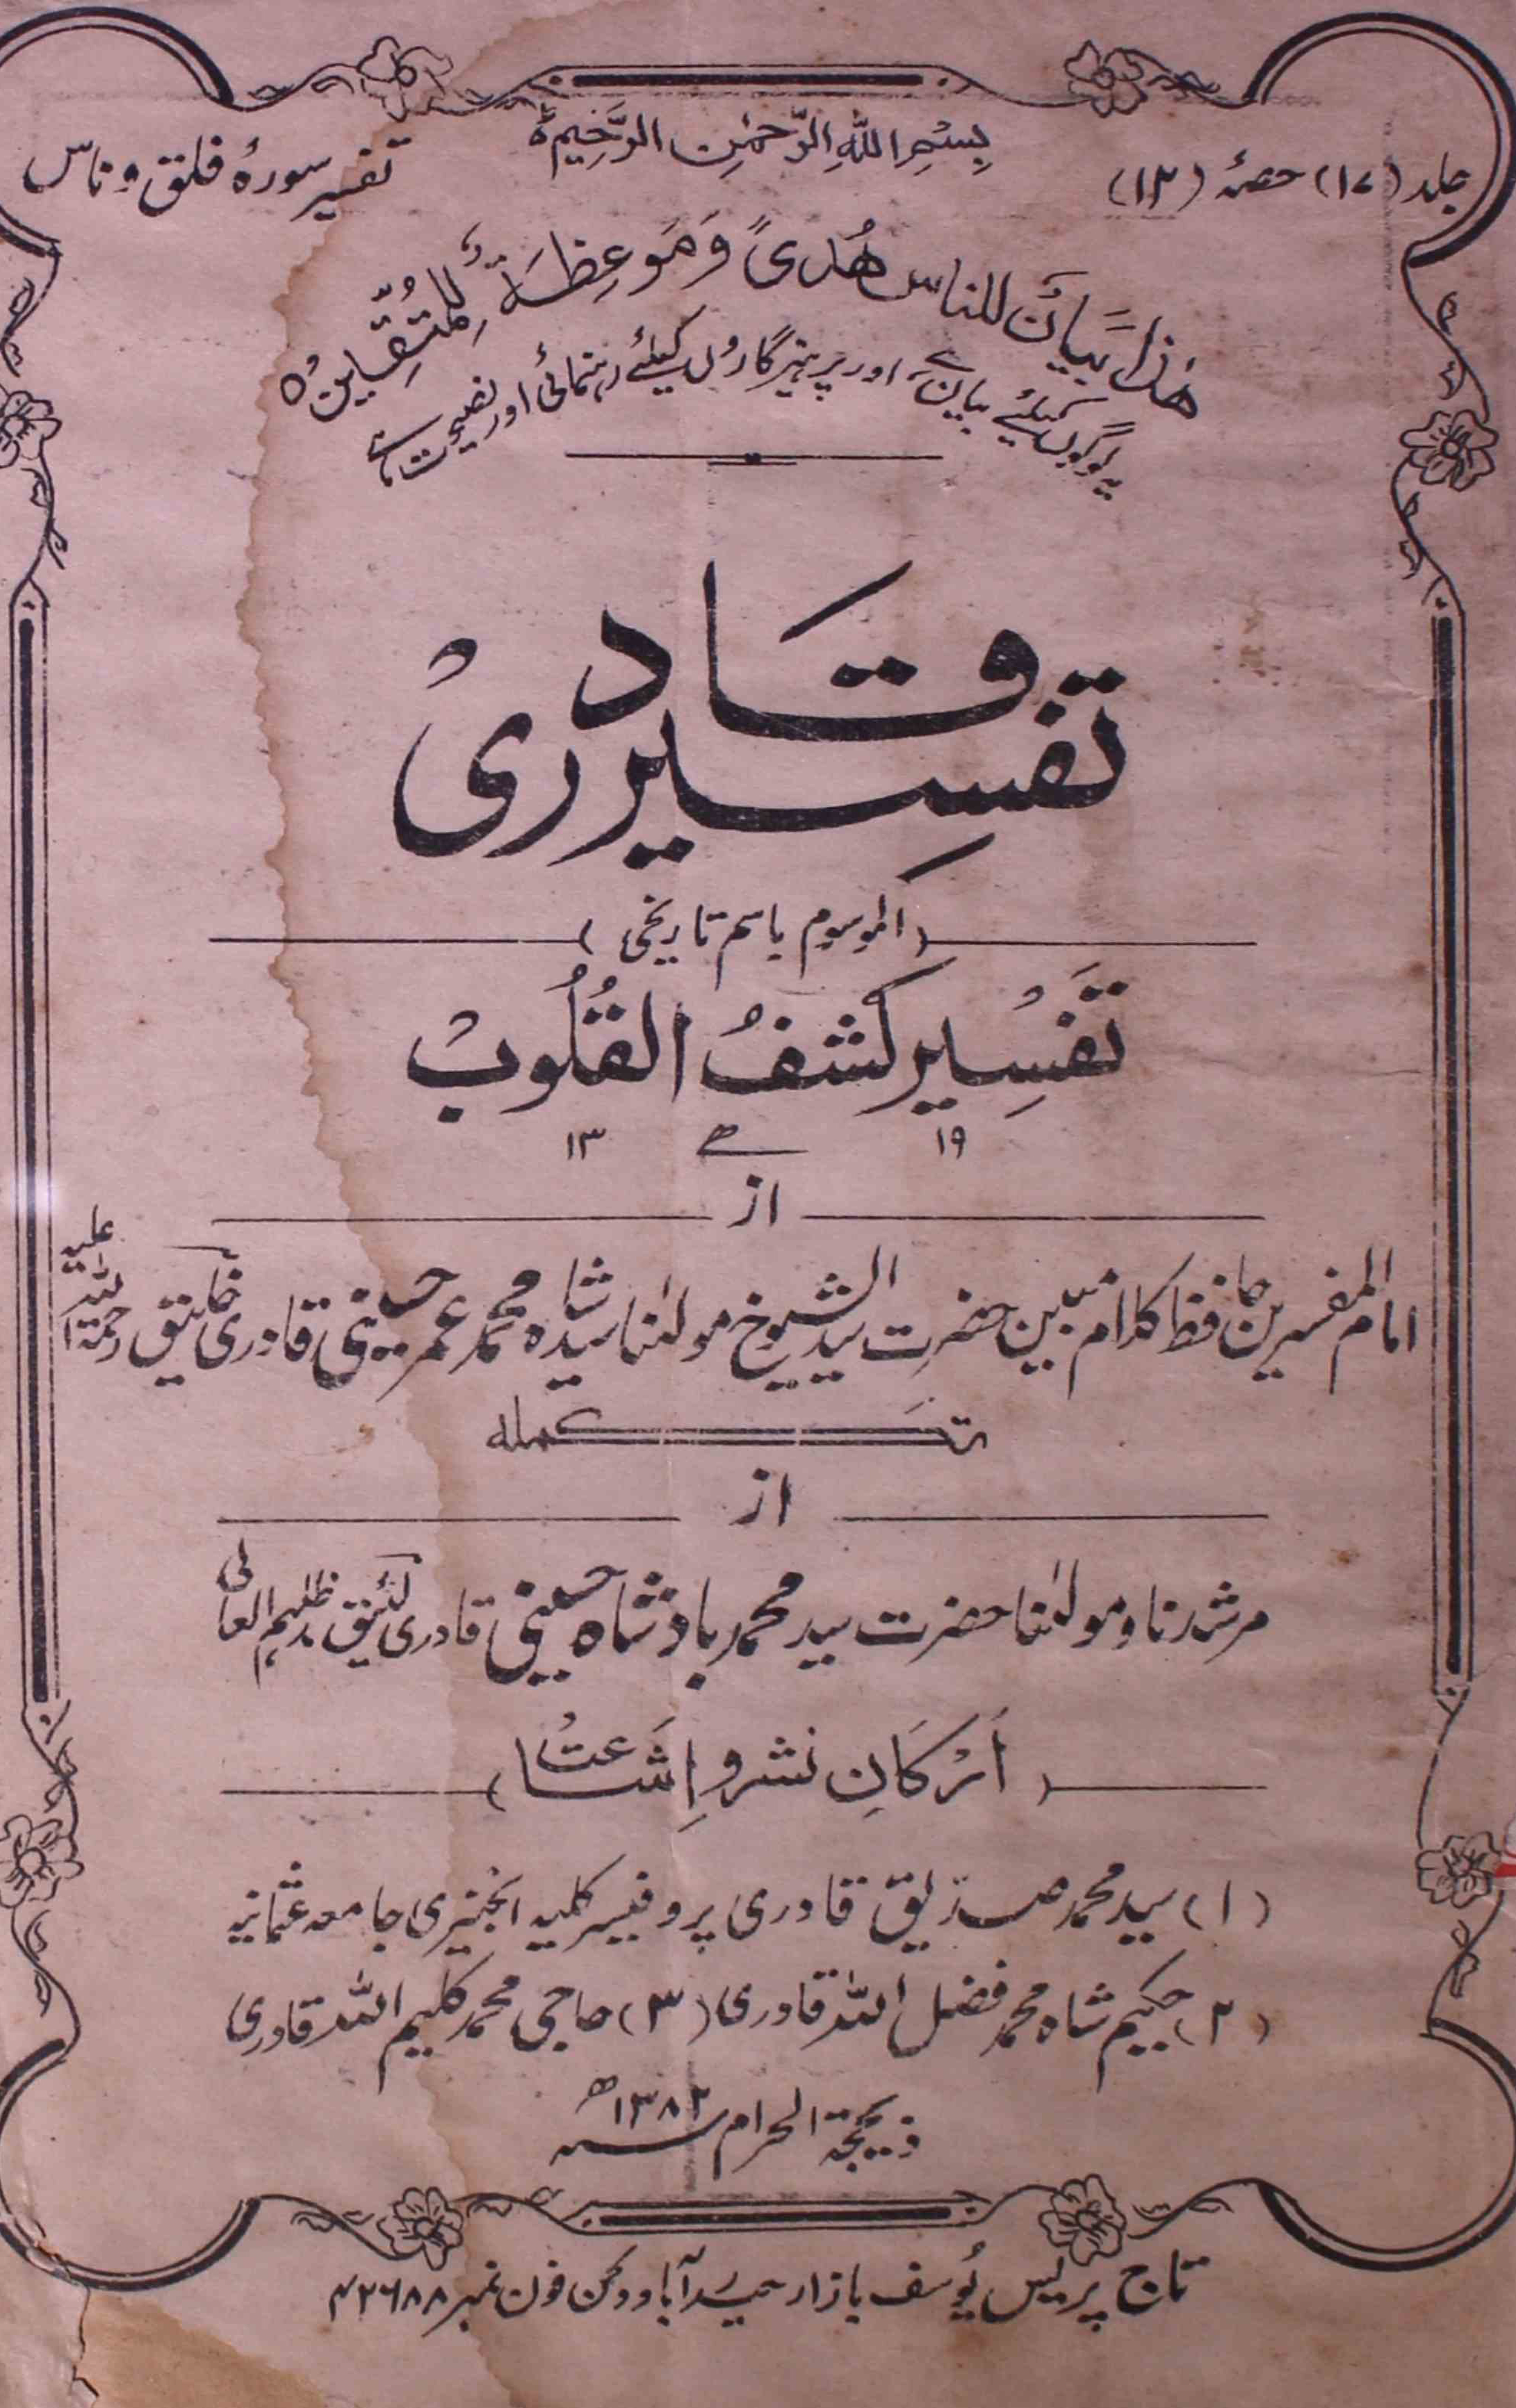 بِسْمِ اللّٰهِ الرَّحْمٰنِ الرَّحِيْمِ
جلد (۱۷) حصۂ (۱۳)
تفسیر سورۂ فلق و ناس
هٰذَا بَيَانٌ للناس هُدىً وَمَوعِظَةٌ لِّلمُتَّقِينَ
یہ لوگوں کیلئے بیان ہے اور پرہیزگاروں کیلئے رہنمائی اور نصیحت ہے
تفسِیر قادری
(الموسوم باسم تاریخی)
تفسِیر کشفُ القُلُوبْ
۱۹ ھ ۱۳
از
امام المفسرین حافظ کلام مبین حضرت سید الشیوخ مولٰنا سید شاہ محمد عمر حسینی قادری خلیق رحمۃ اللہ علیہ
تکملہ
از
مرشدنا و مولٰنا حضرت سید محمد بادشاہ حسینی قادری لئیق مدظلہم العالی
(اَرْکَانِ نشر و اِشَاعتْ)
(۱) سید محمد صدیق قادری پروفیسر کلیہ انجنیری جامعہ عثمانیہ
(۲) حکیم شاہ محمد فضل اللہ قادری (۳) حاجی محمد کلیم اللہ قادری
ذیحجۃ الحرام سنہ ۱۳۸۲ھ
تاج پریس یُوسف بازار حیدرآباد دکن فون نمبر ۴۲۶۸۸